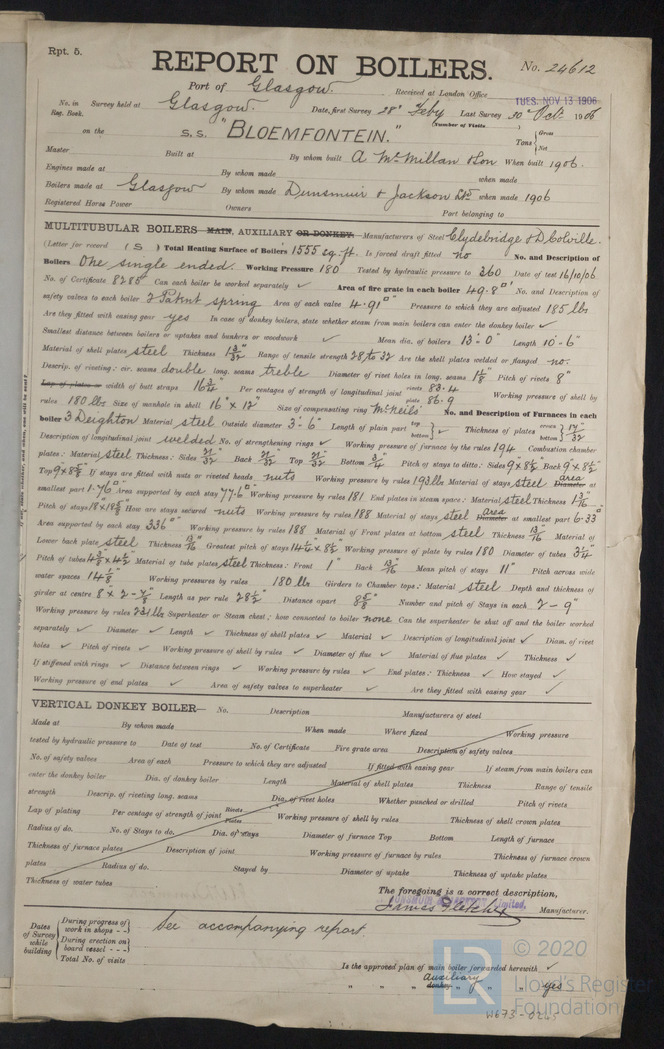 Rpt. 5.
REPORT ON BOILERS.
No. 24612
Port of Glasgow.
Received at London Office TUES. NOV 13 1906
No. in Survey held at Glasgow. Date, first Survey 28th Feby Last Survey 30th Oct. 1906
Reg. Book. (Number of Visits )
on the S.S. "BLOEMFONTEIN." Tons { Gross
Net
Master Built at By whom built A McMillan & Son When built 1906.
Engines made at By whom made when made
Boilers made at Glasgow By whom made Dunsmuir & Jackson Ltd when made 1906
Registered Horse Power Owners Port belonging to
MULTITUBULAR BOILERS MAIN, AUXILIARY OR DONKEY.— Manufacturers of Steel Clydebridge & D Colville.
(Letter for record (S) ) Total Heating Surface of Boilers 1555 sq. ft. Is forced draft fitted no No. and Description of
Boilers One single ended. Working Pressure 180 Tested by hydraulic pressure to 360 Date of test 16/10/06
No. of Certificate 8285 Can each boiler be worked separately ✓ Area of fire grate in each boiler 49.8 □' No. and Description of
safety valves to each boiler 2 Patent spring Area of each valve 4.91 □" Pressure to which they are adjusted 185 lbs
Are they fitted with easing gear yes In case of donkey boilers, state whether steam from main boilers can enter the donkey boiler ✓
Smallest distance between boilers or uptakes and bunkers or woodwork ✓ Mean dia. of boilers 13'-0" Length 10'-6"
Material of shell plates steel Thickness 1 3/32 Range of tensile strength 28 to 32 Are the shell plates welded or flanged no.
Descrip. of riveting: cir. seams double long. seams treble Diameter of rivet holes in long. seams 1 1/8 Pitch of rivets 8"
Lap of plates or width of butt straps 16 3/4 Per centages of strength of longitudinal joint rivets 83.4 plate 86.9 Working pressure of shell by
rules 180 lbs Size of manhole in shell 16" x 12" Size of compensating ring McNeils' No. and Description of Furnaces in each
boiler 3 Deighton Material steel Outside diameter 3'-6" Length of plain part top bottom ✓ Thickness of plates crown bottom 17/32
Description of longitudinal joint welded No. of strengthening rings ✓ Working pressure of furnace by the rules 194 Combustion chamber
plates: Material steel Thickness: Sides 21/32 Back 21/32 Top 21/32 Bottom 3/4 Pitch of stays to ditto: Sides 9" x 8 1/2" Back 9 x 8 1/2
Top 9 x 8 1/2" If stays are fitted with nuts or riveted heads nuts Working pressure by rules 193 lbs Material of stays steel Diameter area at
smallest part 1.76 □" Area supported by each stay 77.6 □" Working pressure by rules 181 End plates in steam space: Material steel Thickness 1 3/16"
Pitch of stays 18 x 18 5/8" How are stays secured nuts Working pressure by rules 188 Material of stays steel Diameter area at smallest part 6.33 □"
Area supported by each stay 336 □" Working pressure by rules 188 Material of Front plates at bottom steel Thickness 13/16" Material of
Lower back plate steel Thickness 13/16" Greatest pitch of stays 14 1/2 x 8 1/2" Working pressure of plate by rules 180 Diameter of tubes 3 1/4"
Pitch of tubes 4 3/8 x 4 1/2" Material of tube plates steel Thickness: Front 1" Back 13/16 Mean pitch of stays 11" Pitch across wide
water spaces 14 1/8" Working pressures by rules 180 lbs Girders to Chamber tops: Material steel Depth and thickness of
girder at centre 8 x 2 - 7/8" Length as per rule 28 1/2" Distance apart 8 5/8" Number and pitch of Stays in each 2 - 9"
Working pressure by rules 231 lbs Superheater or Steam chest; how connected to boiler none Can the superheater be shut off and the boiler worked
separately ✓ Diameter ✓ Length ✓ Thickness of shell plates ✓ Material ✓ Description of longitudinal joint ✓ Diam. of rivet
holes ✓ Pitch of rivets ✓ Working pressure of shell by rules ✓ Diameter of flue ✓ Material of flue plates ✓ Thickness ✓
If stiffened with rings ✓ Distance between rings ✓ Working pressure by rules ✓ End plates: Thickness ✓ How stayed ✓
Working pressure of end plates ✓ Area of safety valves to superheater ✓ Are they fitted with easing gear ✓
VERTICAL DONKEY BOILER— No. Description Manufacturers of steel
Made at By whom made When made Where fixed Working pressure
tested by hydraulic pressure to Date of test No. of Certificate Fire grate area Description of safety valves
No. of safety valves Area of each Pressure to which they are adjusted If fitted with easing gear If steam from main boilers can
enter the donkey boiler Dia. of donkey boiler Length Material of shell plates Thickness Range of tensile
strength Descrip. of riveting long. seams Dia. of rivet holes Whether punched or drilled Pitch of rivets
Lap of plating Per centage of strength of joint Rivets Plates Working pressure of shell by rules Thickness of shell crown plates
Radius of do. No. of Stays to do. Dia. of stays Diameter of furnace Top Bottom Length of furnace
Thickness of furnace plates Description of joint Working pressure of furnace by rules Thickness of furnace crown
plates Radius of do. Stayed by Diameter of uptake Thickness of uptake plates
Thickness of water tubes
The foregoing is a correct description,
James Fletcher Manufacturer.
Dates of Survey while building { During progress of work in shops - -
During erection on board vessel - - -
Total No. of visits
See accompanying report
Is the approved plan of main boiler forwarded herewith ✓
" " " auxiliary donkey " " " yes
W673-0245
© 2020
Lloyd's Register
Foundation
LR